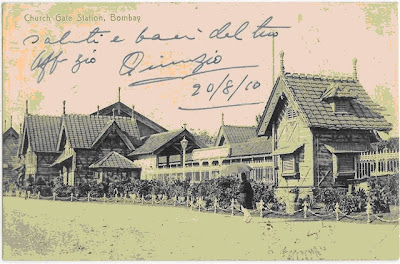 Church Gate Station, Bombay.
saluti e baci del tuo
Aff zio Nunzio
20/8/10